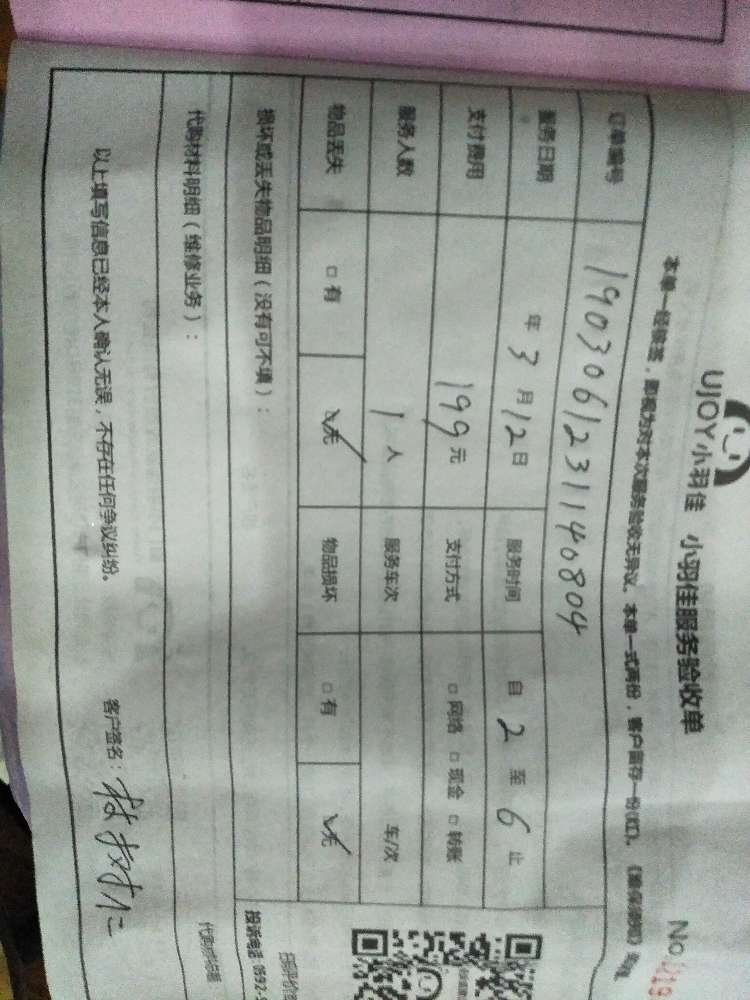 UJOY小羽佳 小羽佳服务验收单
No
本单一经接签，即视为对本次服务验收无异议。本单一式两份，客户留存一份(红)。
订单编号 1903061231140804
服务日期 年 3 月 12 日 服务时间 自 2 至 6 止
支付费用 199 元 支付方式 □ 网络 □ 现金 □ 转账
服务人数 1 人 服务车次 车/次
物品丢失 □ 有 ☑ 无 物品损坏 □ 有 ☑ 无
损坏或丢失物品明细（没有可不填）：
投诉电话 0592-
代购材料明细（维修业务）：
以上填写信息已经本人确认无误，不存在任何争议纠纷。 客户签名：